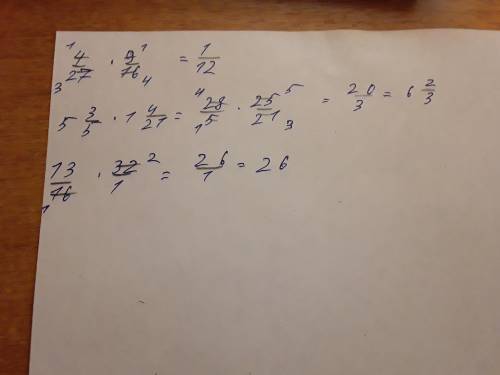 4/27 · 9/16 = 1/12
5 3/5 · 1 4/21 = 28/5 · 25/21 = 20/3 = 6 2/3
13/16 · 32/1 = 26/1 = 26